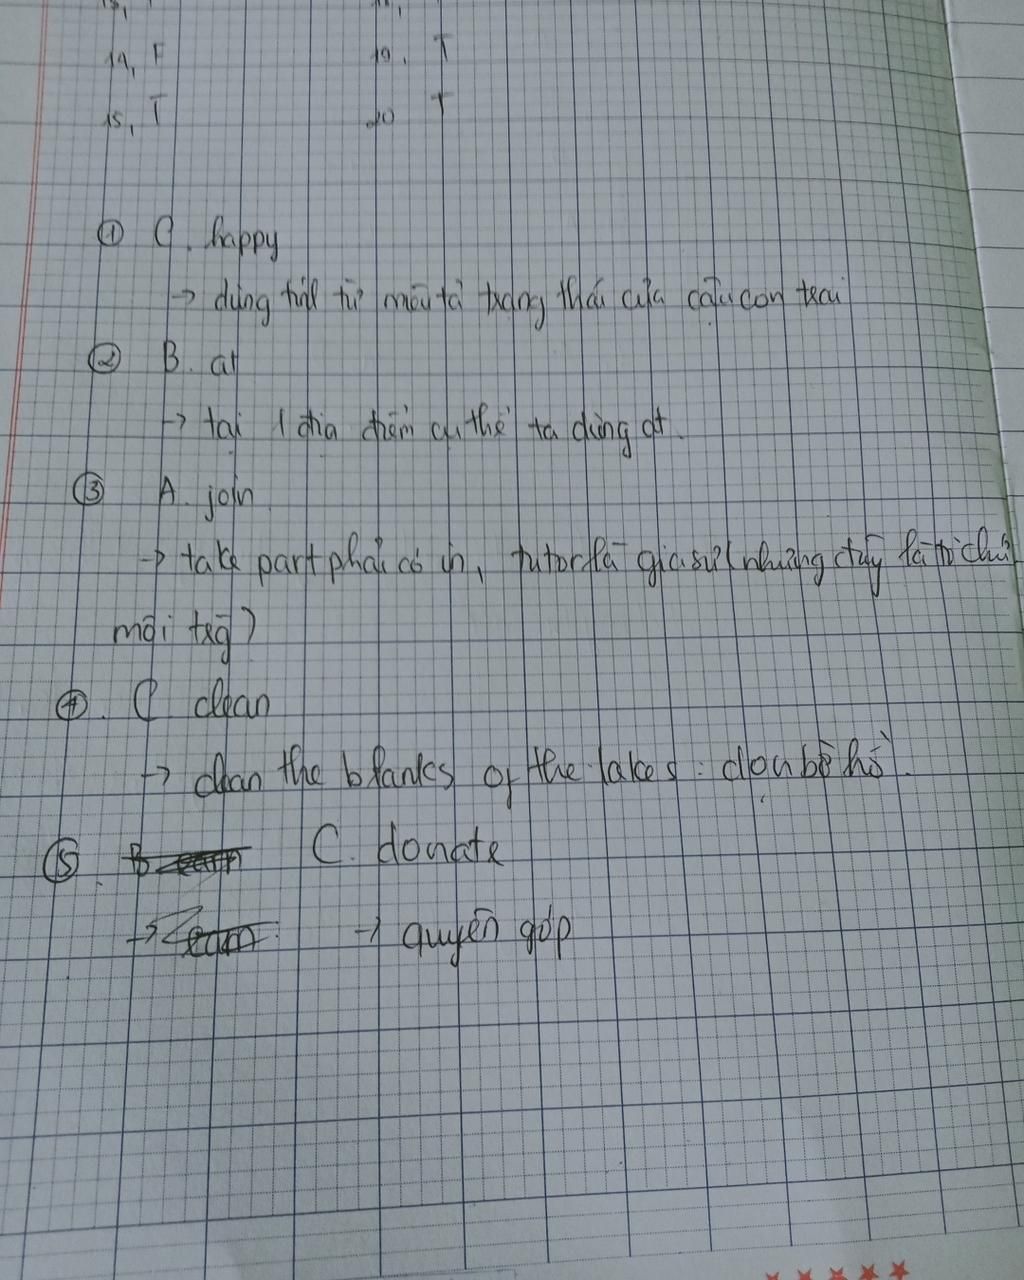 14, F 19, T
15, T 20 T
① C. happy
→ dùng tính từ miêu tả trạng thái của cậu con trai
② B. at
→ tại 1 địa điểm cụ thể ta dùng at.
③ A. join
→ take part phải có in, tutor là gia sư (nhưng đây là tổ chức
môi trg)
④. C clean
→ clean the blanks of the lakes: dọn bờ hồ.
⑤. C. donate
→ quyên góp